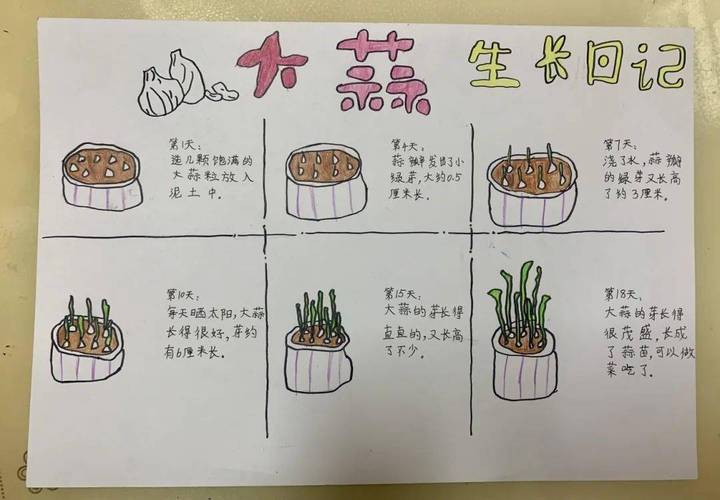 大蒜 生长日记
第1天:
选几颗饱满的
大蒜粒放入
泥土中。
第4天:
蒜瓣发出了小
绿芽,大约0.5
厘米长。
第7天:
浇了水,蒜瓣
的绿芽又长高
了约3厘米。
第10天:
每天晒太阳,大蒜
长得很好,芽约
有6厘米长。
第15天:
大蒜的芽长得
直直的,又长高
了不少。
第18天:
大蒜的芽长得
很茂盛,长成
了蒜苗,可以做
菜吃了。